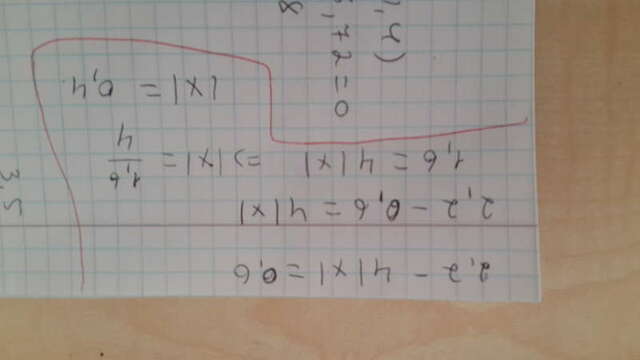 2,2 - 4|x| = 0,6
2,2 - 0,6 = 4|x|
1,6 = 4|x| => |x| = 1,6/4
|x| = 0,4
,72=0
,4)
8
3,5